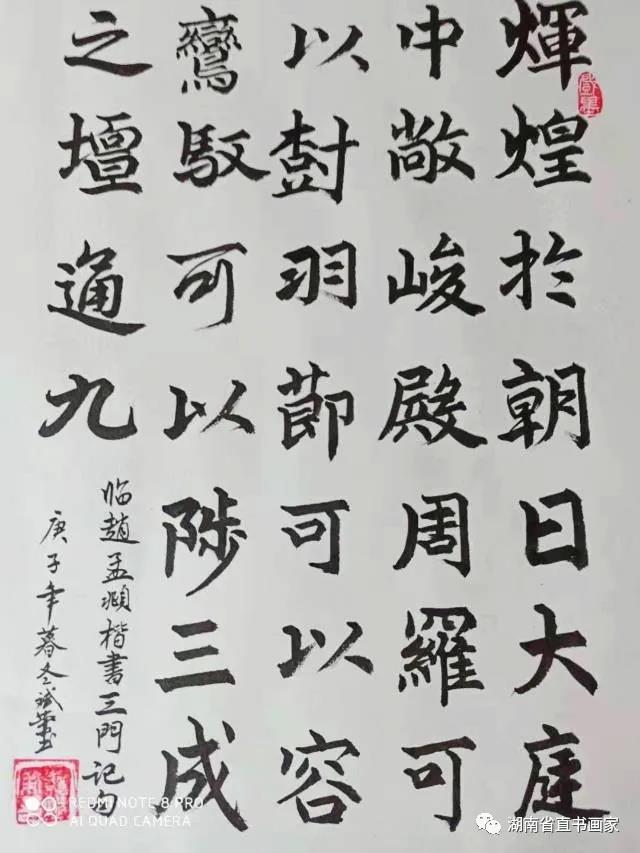 輝煌於朝日大庭
中敞峻殿周羅可
以尌羽節可以容
鸞馭可以陟三成
之壇通九
临趙孟頫楷書三門记句
庚子年暮冬
REDMI NOTE 8 PRO
AI QUAD CAMERA
湖南省直书画家